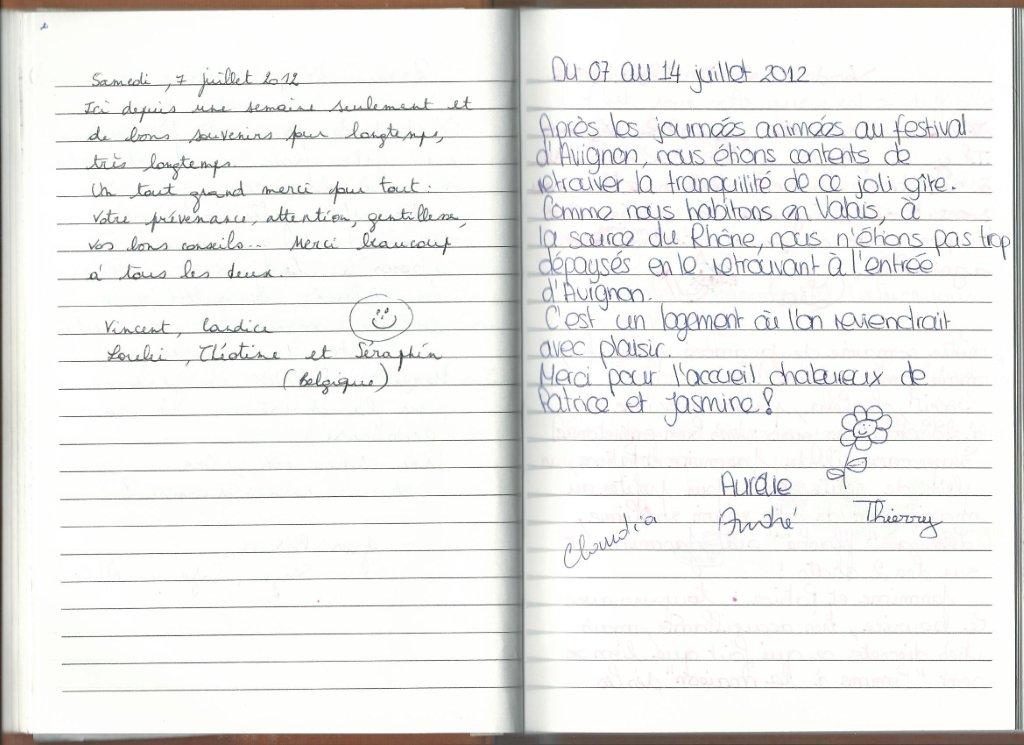 Samedi, 7 juillet 2012
Ici depuis une semaine seulement et
de bons souvenirs pour longtemps,
très longtemps.
Un tout grand merci pour tout :
votre prévenance, attention, gentillesse,
vos bons conseils... Merci beaucoup
à tous les deux.
Vincent, Candice
Lorelei, Théotime et Séraphin
(Belgique)
Du 07 au 14 juillet 2012
Après les journées animées au festival
d'Avignon, nous étions contents de
retrouver la tranquilité de ce joli gîte.
Comme nous habitons en Valais, à
la source du Rhône, nous n'étions pas trop
dépaysés en le retrouvant à l'entrée
d'Avignon.
C'est un logement où l'on reviendrait
avec plaisir.
Merci pour l'accueil chaleureux de
Patrice et Jasmine !
Aurélie
Claudia André Thierry